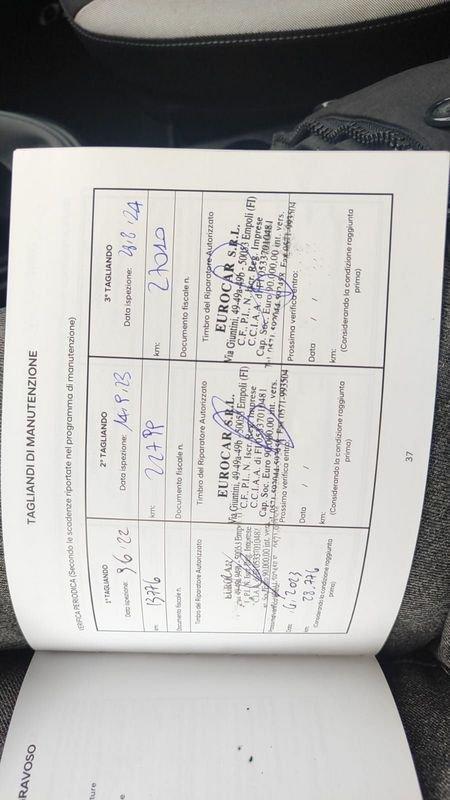 TAGLIANDI DI MANUTENZIONE
VERIFICA PERIODICA (Secondo le scadenze riportate nel programma di manutenzione)
1° TAGLIANDO
Data ispezione: 9.6.22
km: 13776
Documento fiscale n.
Timbro del Riparatore Autorizzato
EUROCAR
Prossima verifica entro:
Data: 6.2023
km: 28.776
(Considerando la condizione raggiunta
prima)
2° TAGLIANDO
Data ispezione: 14.9.23
km: 22799
Documento fiscale n.
Timbro del Riparatore Autorizzato
EUROCAR S.R.L.
Via Giuntini, 49-49a-49b - 50053 Empoli (FI)
C.F. P.I. N. Iscr. Reg. Imprese
C.C.I.A.A. di FI 05337010481
Cap. Soc. Euro 90.000,00 int. vers.
Fax 0571-993504
Prossima verifica entro:
Data / /
km:
(Considerando la condizione raggiunta
prima)
3° TAGLIANDO
Data ispezione: 24
km: 27010
Documento fiscale n.
Timbro del Riparatore Autorizzato
EUROCAR S.R.L.
Via Giuntini, 49-49a-49b - 50053 Empoli (FI)
C.F. P.I. N. Iscr. Reg. Imprese
C.C.I.A.A. di FI 05337010481
Cap. Soc. Euro 90.000,00 int. vers.
Fax 0571-993504
Prossima verifica entro:
Data / /
km:
(Considerando la condizione raggiunta
prima)
37
RAVOSO
ture
e